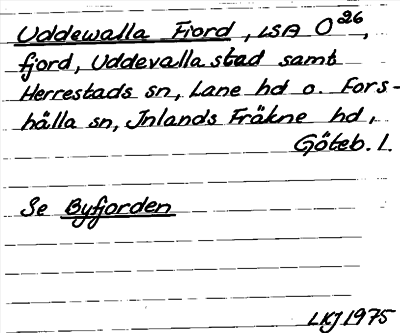 Uddewalla Fiord, LSA O26,
fjord, Uddevalla stad samt
Herrestads sn, Lane hd o. Fors-
hälla sn, Inlands Fräkne hd,
Göteb. l.
Se Byfjorden
LKJ 1975